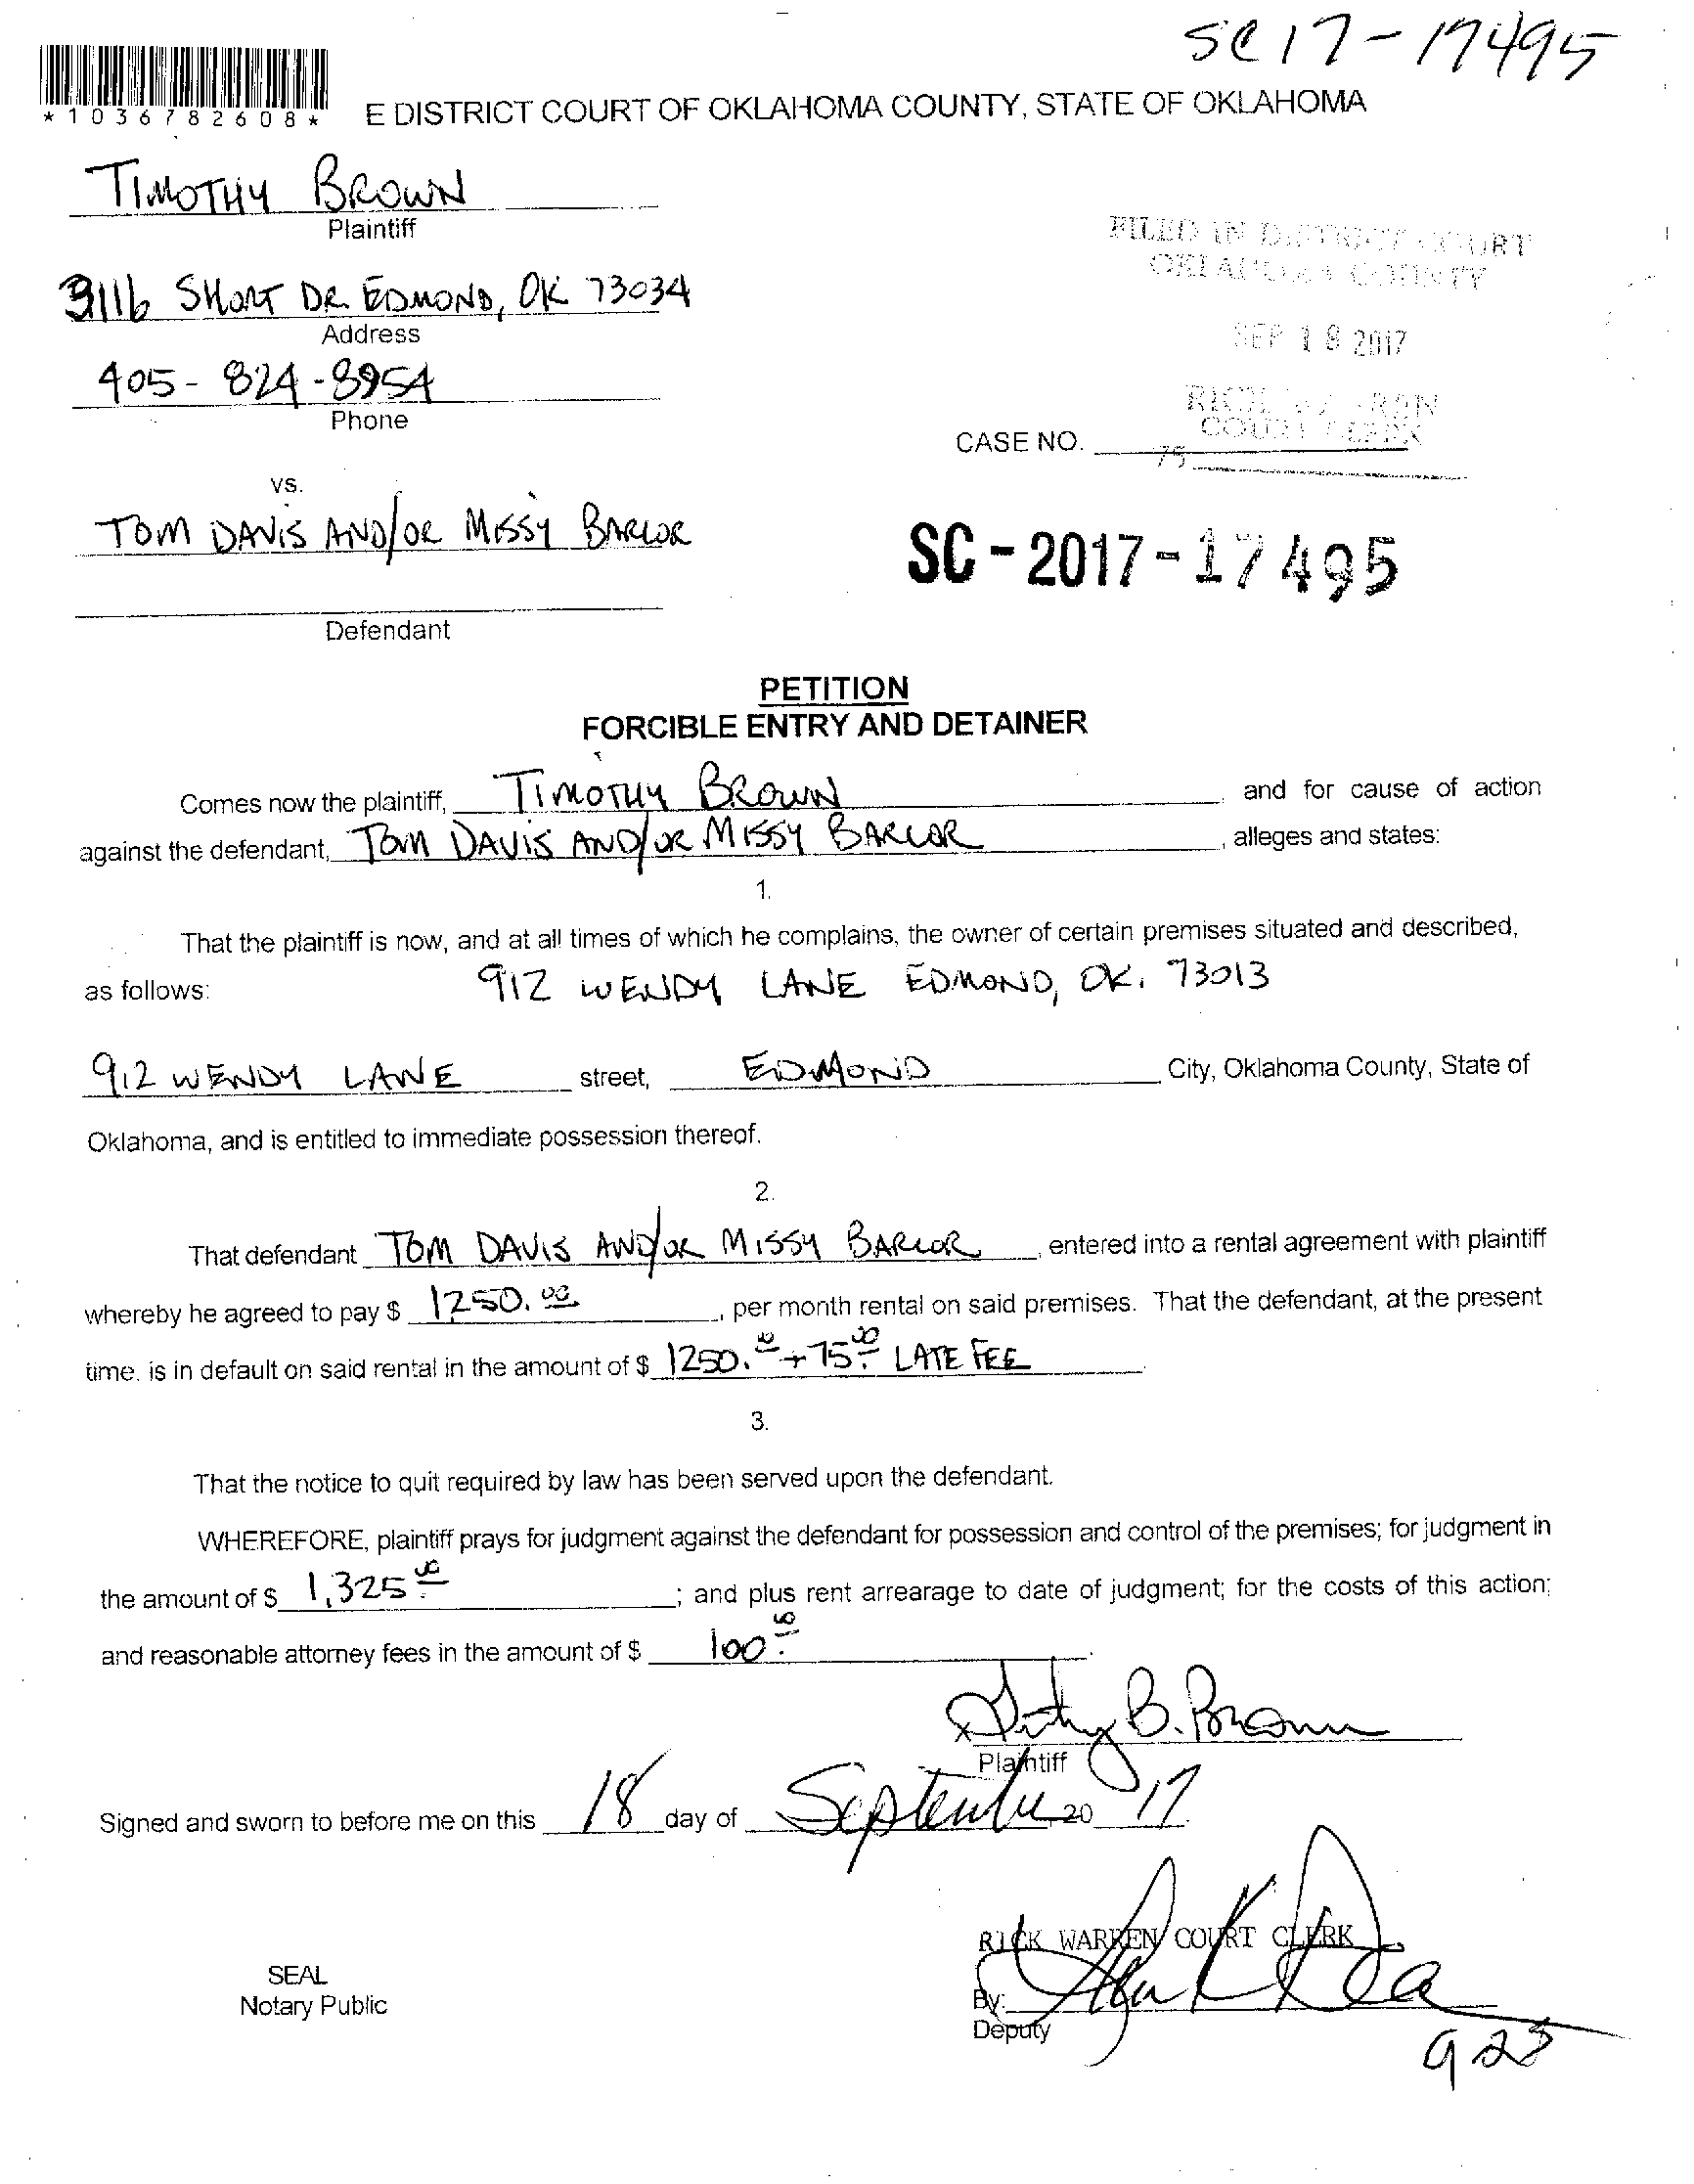 SC17-17495
*1036782608*
E DISTRICT COURT OF OKLAHOMA COUNTY, STATE OF OKLAHOMA
TIMOTHY BROWN
Plaintiff
FILED IN DISTRICT COURT
OKLAHOMA COUNTY
3116 SHORT DR. EDMOND, OK 73034
Address
SEP 18 2017
405-824-8954
Phone
RICK WARREN
COURT CLERK
CASE NO.
75
vs.
TOM DAVIS AND/OR MISSY BARLOR
SC-2017-17495
Defendant
PETITION
FORCIBLE ENTRY AND DETAINER
Comes now the plaintiff, TIMOTHY BROWN and for cause of action
against the defendant, TOM DAVIS AND/OR MISSY BARLOR, alleges and states:
1.
That the plaintiff is now, and at all times of which he complains, the owner of certain premises situated and described,
as follows: 912 WENDY LANE EDMOND, OK. 73013
912 WENDY LANE street, EDMOND City, Oklahoma County, State of
Oklahoma, and is entitled to immediate possession thereof.
2.
That defendant TOM DAVIS AND/OR MISSY BARLOR, entered into a rental agreement with plaintiff
whereby he agreed to pay $ 1250.00, per month rental on said premises. That the defendant, at the present
time, is in default on said rental in the amount of $ 1250.00 + 75.00 LATE FEE.
3.
That the notice to quit required by law has been served upon the defendant.
WHEREFORE, plaintiff prays for judgment against the defendant for possession and control of the premises; for judgment in
the amount of $ 1,325.00; and plus rent arrearage to date of judgment; for the costs of this action;
and reasonable attorney fees in the amount of $ 100.00.
B. Brown
Plaintiff
Signed and sworn to before me on this 18 day of September, 20 17.
RICK WARREN COURT CLERK
SEAL
Notary Public
By:
Deputy
923